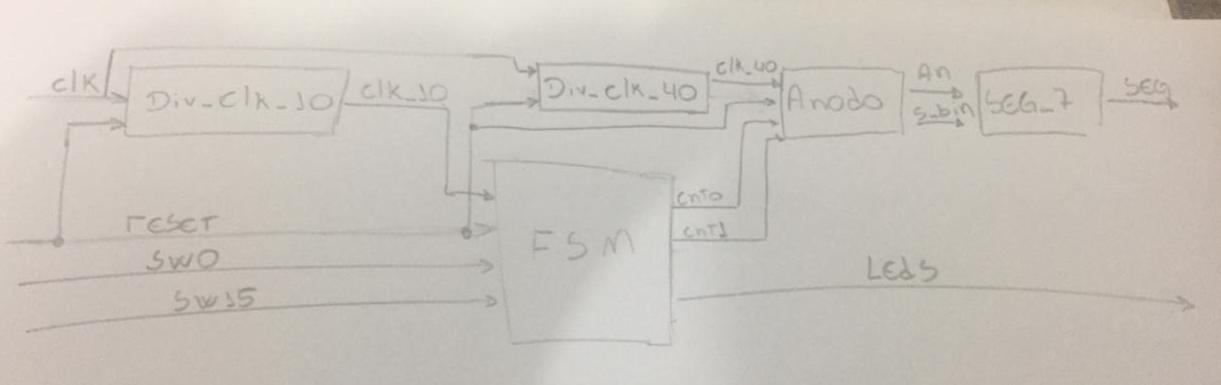 clk
Div_Clk_10
clk_10
Div_clk_40
clk_40
Anodo
An
s_bin
SEG_7
SEG
reset
SW0
SW15
FSM
cnt0
cnt1
Leds